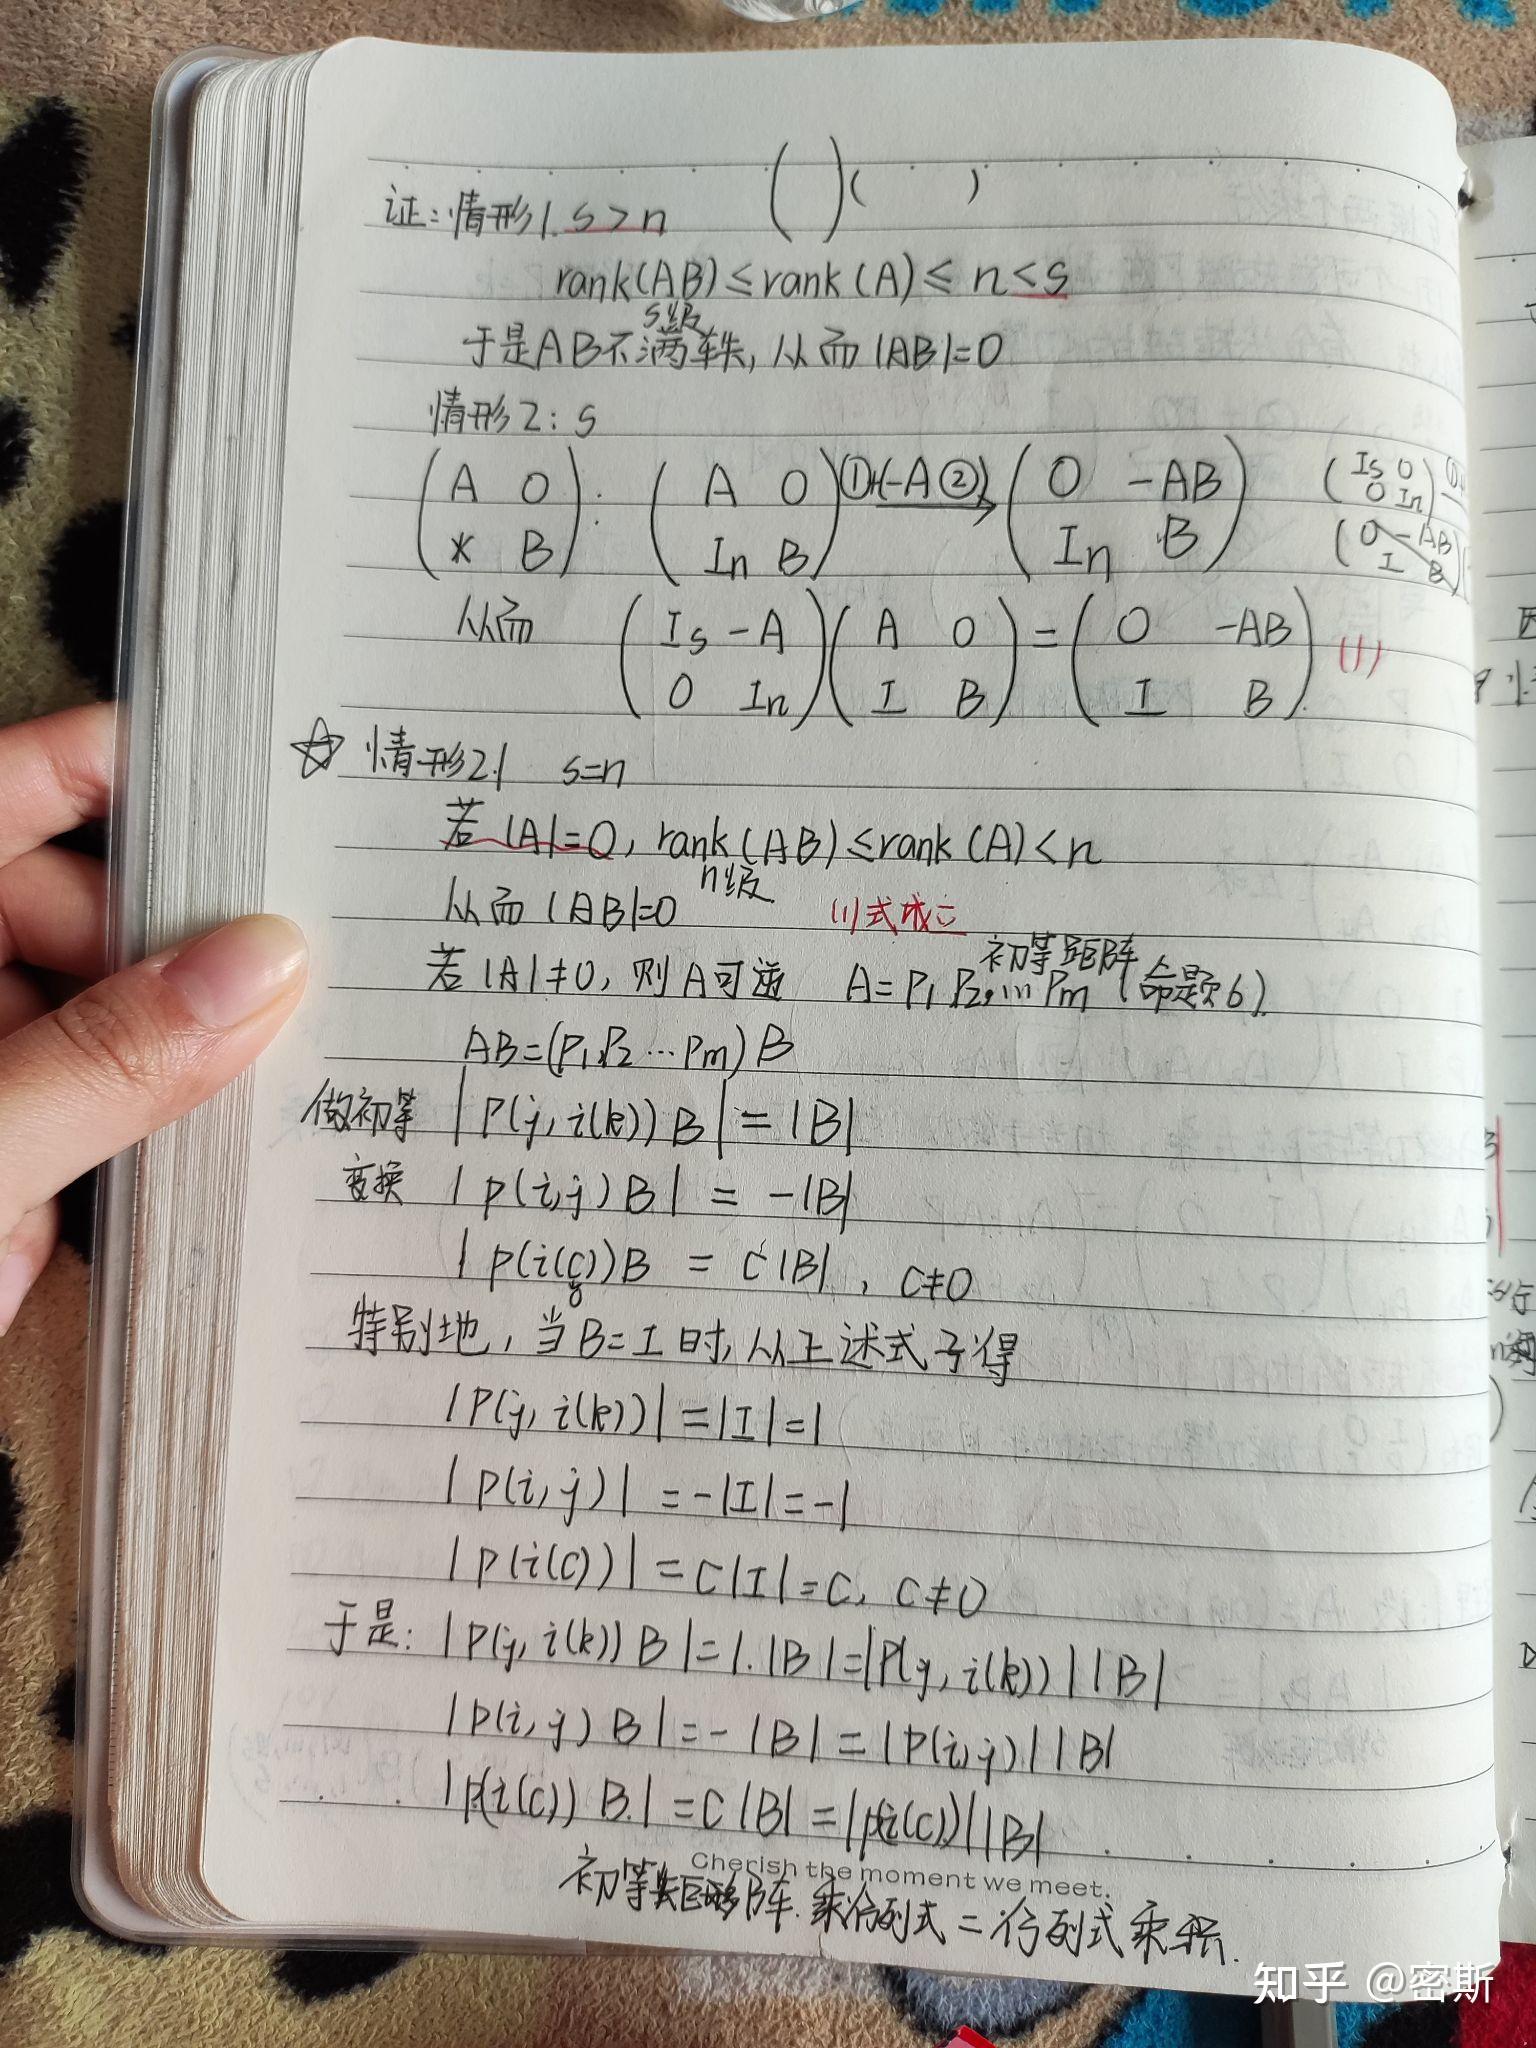 证: 情形1. s > n ( )( )
rank(AB) ≤ rank(A) ≤ n < s
s级
于是AB不满秩, 从而 |AB|=0
情形2: s
(A 0 * B): (A 0 In B) ①+(-A②)→ (0 -AB In B) (Is 0 0 In)
(0 -AB I B)
从而 (Is -A 0 In)(A 0 I B) = (0 -AB I B). (1)
☆ 情形2.1 s=n
若 |A|=0, rank(AB) ≤ rank(A) < n
n级
从而 |AB|=0 (1)式成立
初等矩阵
若 |A|≠0, 则A可逆 A=P1 P2, ... Pm (命题6).
AB=(P1,P2 ... Pm)B
做初等 |P(j, i(k))B| = |B|
变换 |p(i,j)B| = -|B|
|p(i(c))B = c|B|, C≠0
特别地, 当B=I时, 从上述式子得
|P(j, i(k))| = |I| = 1
|p(i, j)| = -|I| = -1
|p(i(c))| = C|I| = C, C≠0
于是: |P(j, i(k))B| = 1·|B| = |P(j, i(k))||B|
|p(i, j)B| = -|B| = |p(i,j)||B|
|p(i(c))B.| = C|B| = |p(i(c))||B|
Cherish the moment we meet.
初等矩阵. 乘行列式 = 行列式乘积.
知乎 @密斯